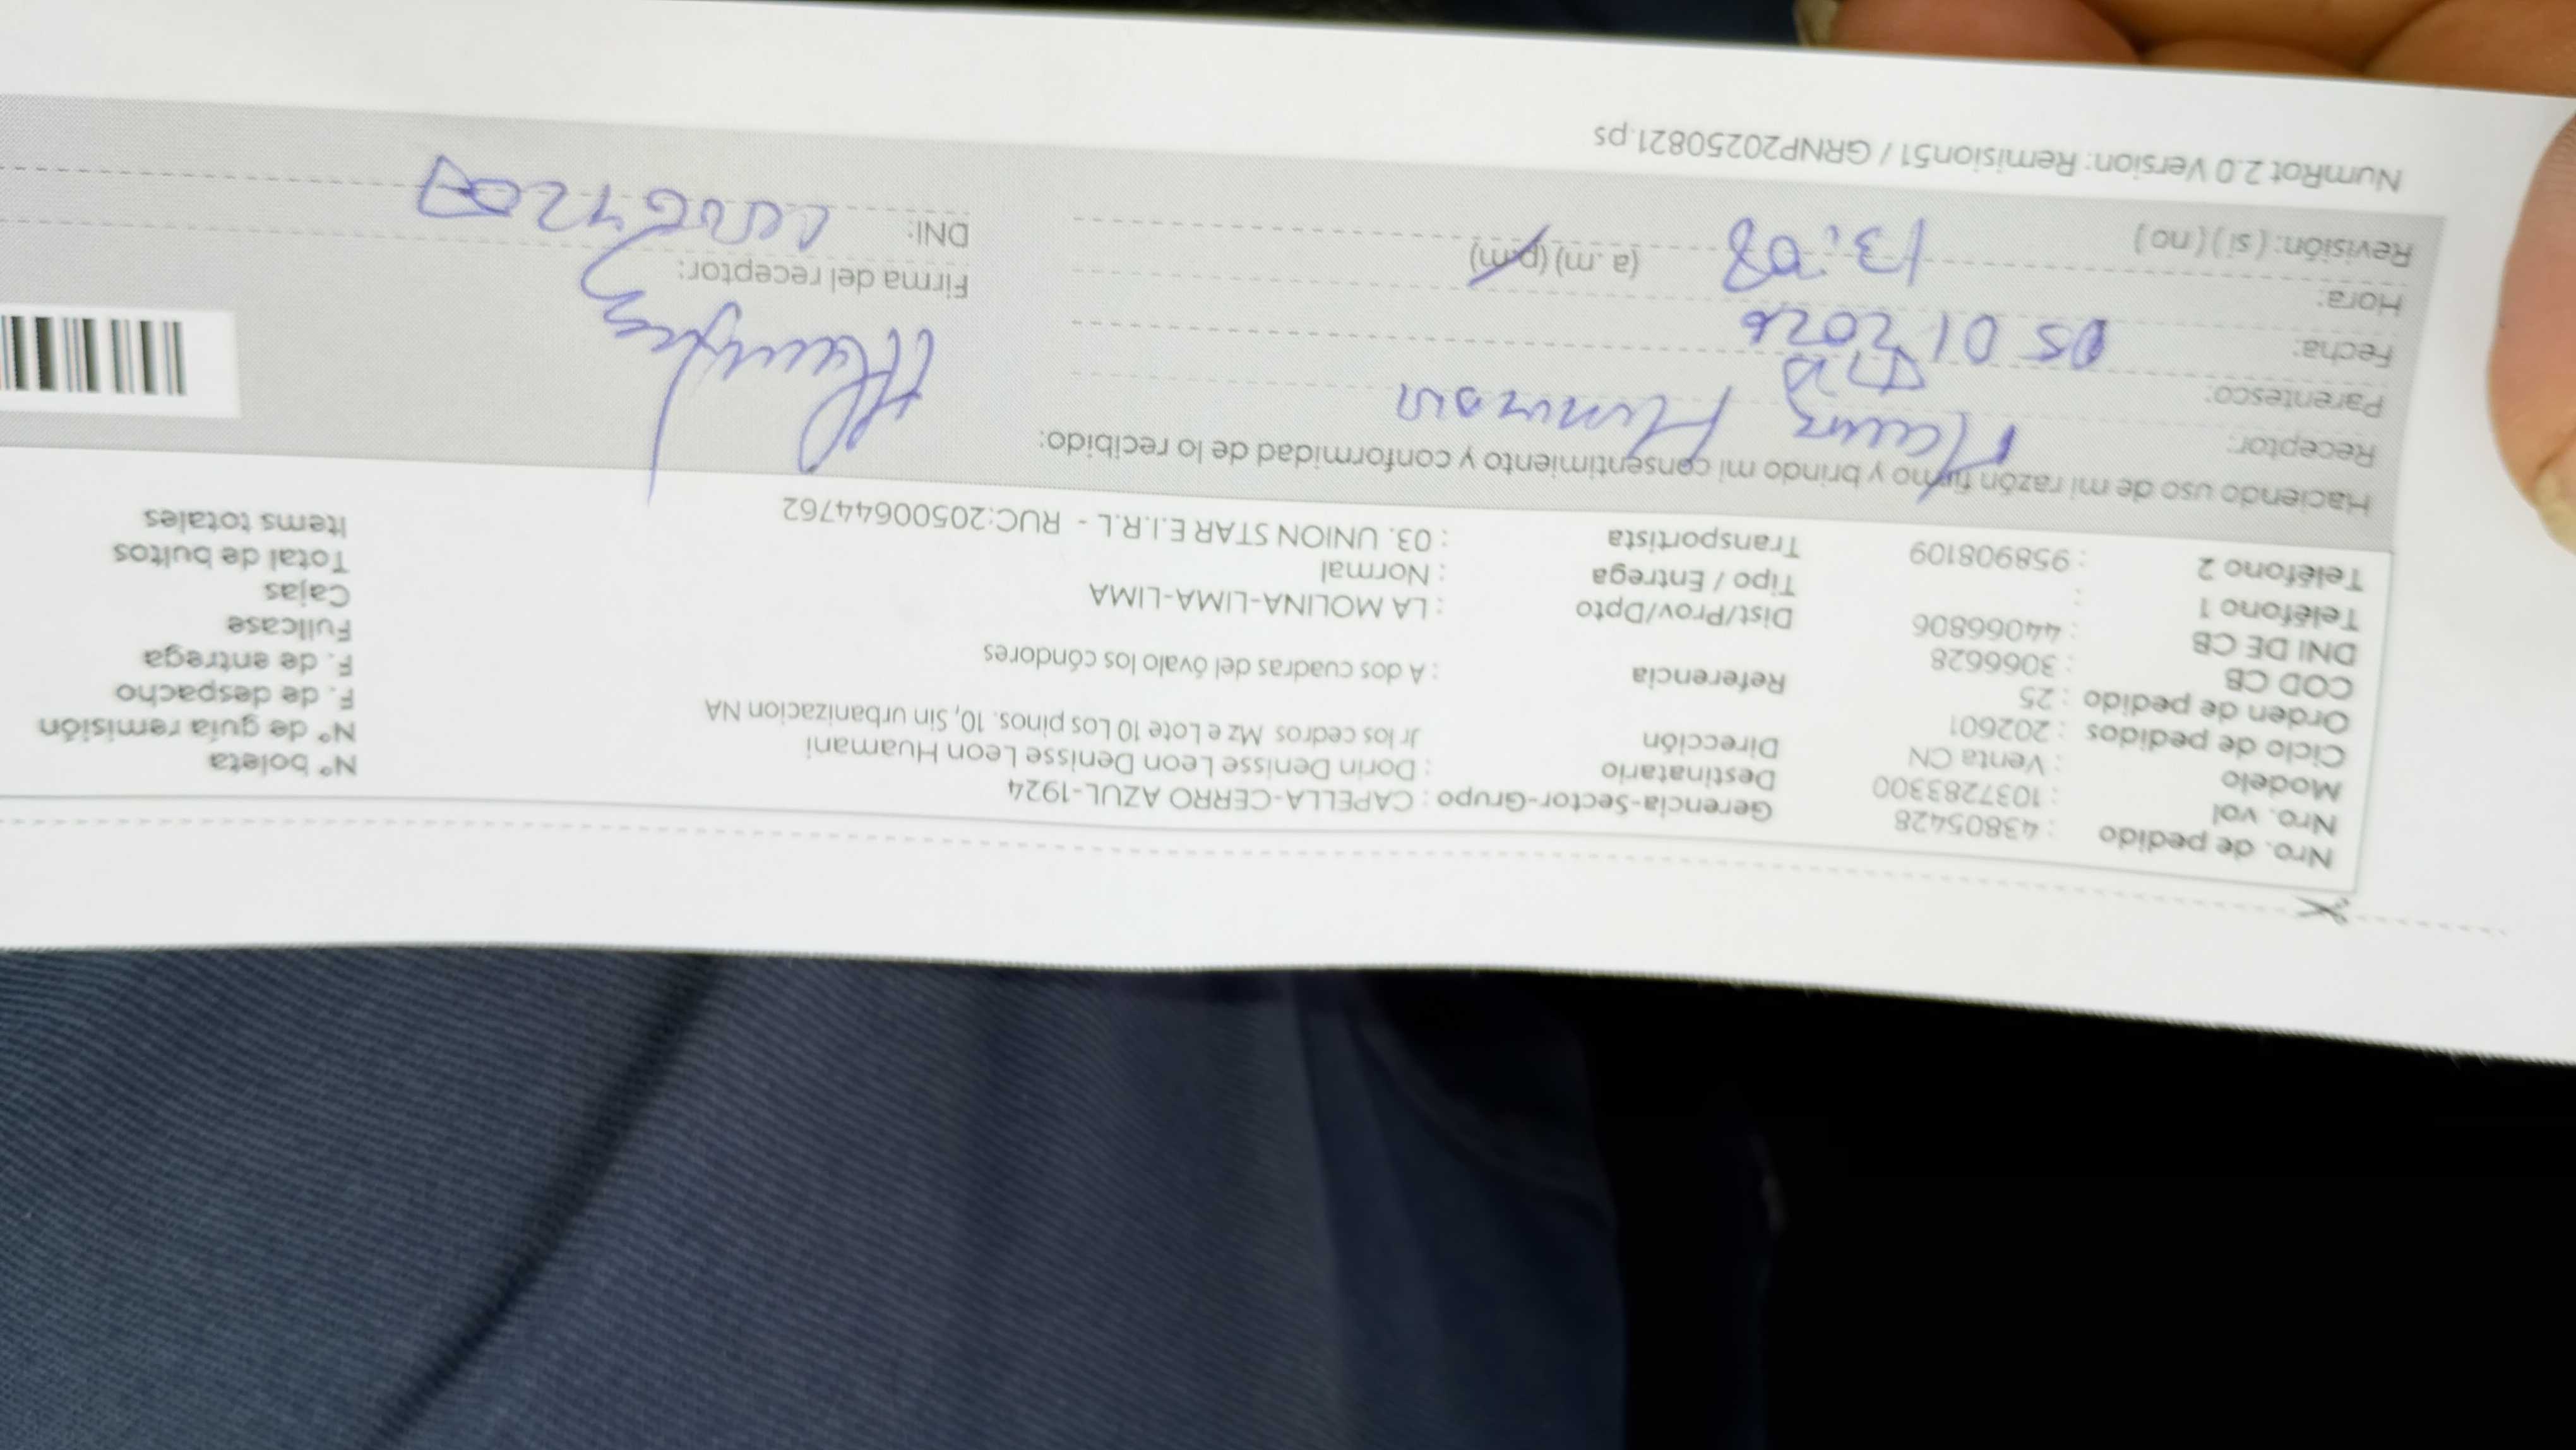 Nro. de pedido : 43805428
Nro. vol : 1037283300
Modelo : Venta CN
Ciclo de pedidos : 202601
Orden de pedido : 25
COD CB : 3066628
DNI DE CB : 44066806
Teléfono 1 :
Teléfono 2 : 958908109
Gerencia-Sector-Grupo : CAPELLA-CERRO AZUL-1924
Destinatario : Dorin Denisse Leon Denisse Leon Huamani
Dirección Jr los cedros Mz e Lote 10 Los pinos. 10, Sin urbanizacion NA
Referencia : A dos cuadras del óvalo los cóndores
Dist/Prov/Dpto : LA MOLINA-LIMA-LIMA
Tipo / Entrega : Normal
Transportista : 03. UNION STAR E.I.R.L - RUC:20500644762
N° boleta
N° de guía remisión
F. de despacho
F. de entrega
Fullcase
Cajas
Total de bultos
Items totales
Haciendo uso de mi razón firmo y brindo mi consentimiento y conformidad de lo recibido:
Receptor:
Parentesco:
Fecha: 05 01 2026
Hora: 13:08 (a.m) (p.m)
Revisión: ( si ) ( no )
Firma del receptor:
DNI:
NumRot 2.0 Version: Remision51 / GRNP20250821.ps